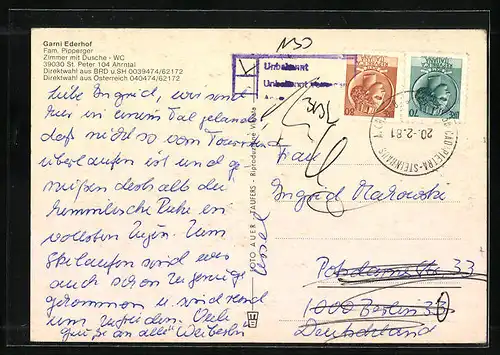 Garni Ederhof
Fam. Pipperger
Zimmer mit Dusche - WC
39030 St. Peter 104 Ahrntal
Direktwahl aus BRD u.SH 0039474/62172
Direktwahl aus Österreich 040474/62172
Liebe Ingrid, wir sind
hier in einem Tal gelandet,
daß nicht so vom Tourismus
überlaufen ist und genießen deshalb die
himmlische Ruhe in
vollsten Zügen. Zum
Skilaufen sind wir
auch schon zur Genüge
gekommen u. sind rund
um zufrieden. Viele
Grüße an alle "Weiberln"
FOTO AUER - TAUFERS - Riproduzione Vietata
Unbekannt
20.-2.81
CADIPIETRA-STEINHAUS
70
Frau
Ingrid
Potsdamerstr. 33
1000 Berlin 33
Deutschland